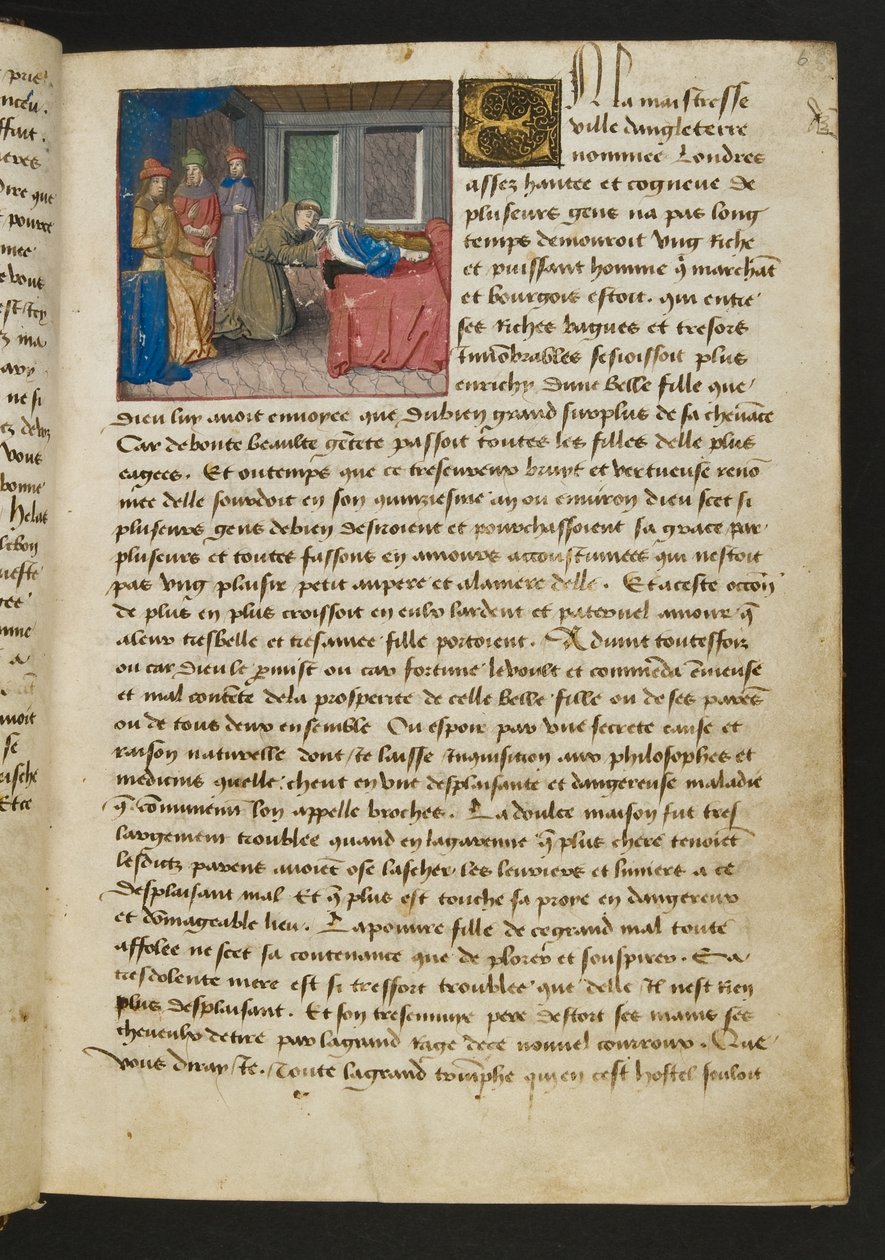 EN la maistresse
ville dangleterre
nommee Londres
assez hantee et cogneue de
pluseurs gens na pas long
temps demouroit vng Riche
et puissant homme q̃ marchãt
et bourgois estoit. qui entre
ses Riches bagues et tresors
Innõbrables sesioissoit plus
enrichy dune belle fille que
dieu luy auoit enuoyee que dubien grand surplus de sa cheuãce
Car debonte beaulte gẽtete passoit toutes les filles delle plus
eagees. Et ontemps que ce treseureux bruyt et vertueuse renõ
mee delle sourdoit en son quinziesme an ou enuiron dieu scet si
pluseurs gens debien desiroient et pourchassoient sa grace par
pluseurs et toutes fassons en amours accoustumees qui nestoit
pas vng plaisir petit aupere et alamere delle. Et aceste occõn
de plus en plus croissoit en eulx lardent et paternel amour q̃
aleur tresbelle et tresamee fille portoient. Aduint toutesfoiz
ou car dieu le pmist ou car fortune le voult et commẽda ẽuieuse
et mal contẽte dela prosperite de celle belle fille ou de ses parẽs
ou de tous deux ensemble Ou espoir par vne secrete cause et
raison naturelle dont Ie laisse Inquisition aux philosophes et
medicins quelle cheut en vne desplaisante et dangereuse maladie
q̃ cõmunemt lon appelle broches. La doulce maison fut tres
largement troublee quand en lagarenne q̃ plus chere tenoiẽt
lesdictz parens auoiẽt ose lascher les leuriers et limiers a ce
desplaisant mal Et q̃ plus est touche sa proye en dangereux
et dõmageable lieu. Lapouure fille de cegrand mal toute
affolee ne scet sa contenance que de plorer et souspirer. Sa
tresdolente mere est si tresfort troublee que delle Il nest Rien
plus desplaisant. Et son tresennuye pere destort ses mains ses
cheueulx detire par lagrand rage dece nouuel courroux. Que
vous diray Ie. Toute lagrand triũphe qui en cest hostel souloit